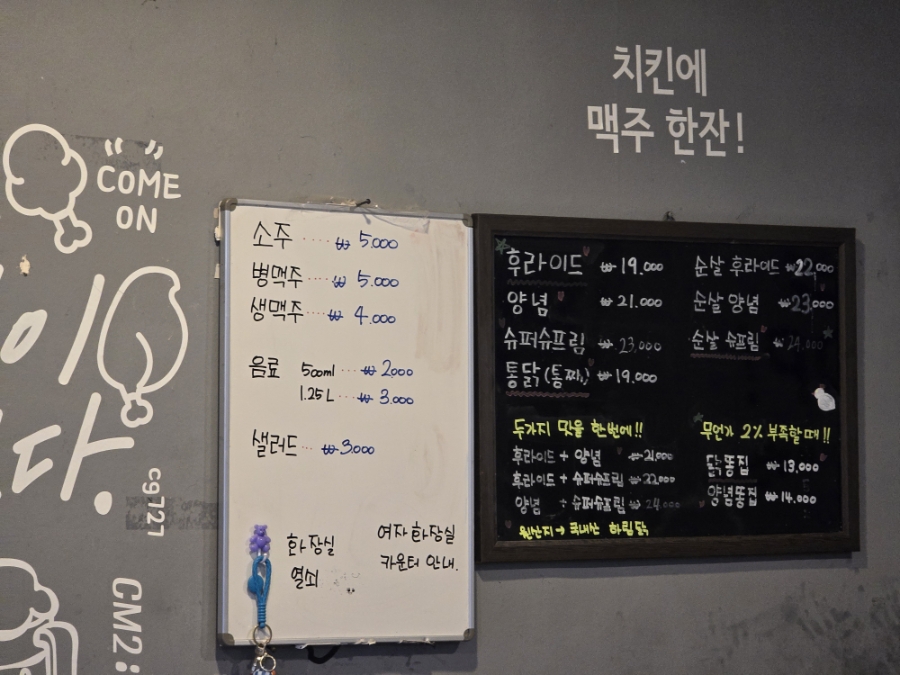 치킨에
맥주 한잔!
COME
ON
이
다.
C9727
CM2:
소주 ···· ₩ 5.000
병맥주 ···· ₩ 5.000
생맥주 ···· ₩ 4.000
음료 500ml ··· ₩ 2000
1.25L ··· ₩ 3.000
샐러드 ··· ₩3.000
화장실
열쇠
여자화장실
카운터 안내.
후라이드 ₩19.000
양념 ₩21.000
슈퍼슈프림 ₩23,000
통닭(통찌) ₩19,000
순살 후라이드 ₩22,000
순살 양념 ₩23,000
순살 슈프림 ₩24.000
두가지 맛을 한번에!!
후라이드 + 양념 ₩21,000
후라이드 + 슈퍼슈프림 ₩22,000
양념 + 슈퍼슈프림 ₩24,000
원산지→국내산 하림닭
무언가 2% 부족할 때!!
닭똥집 ₩13,000
양념똥집 ₩14,000